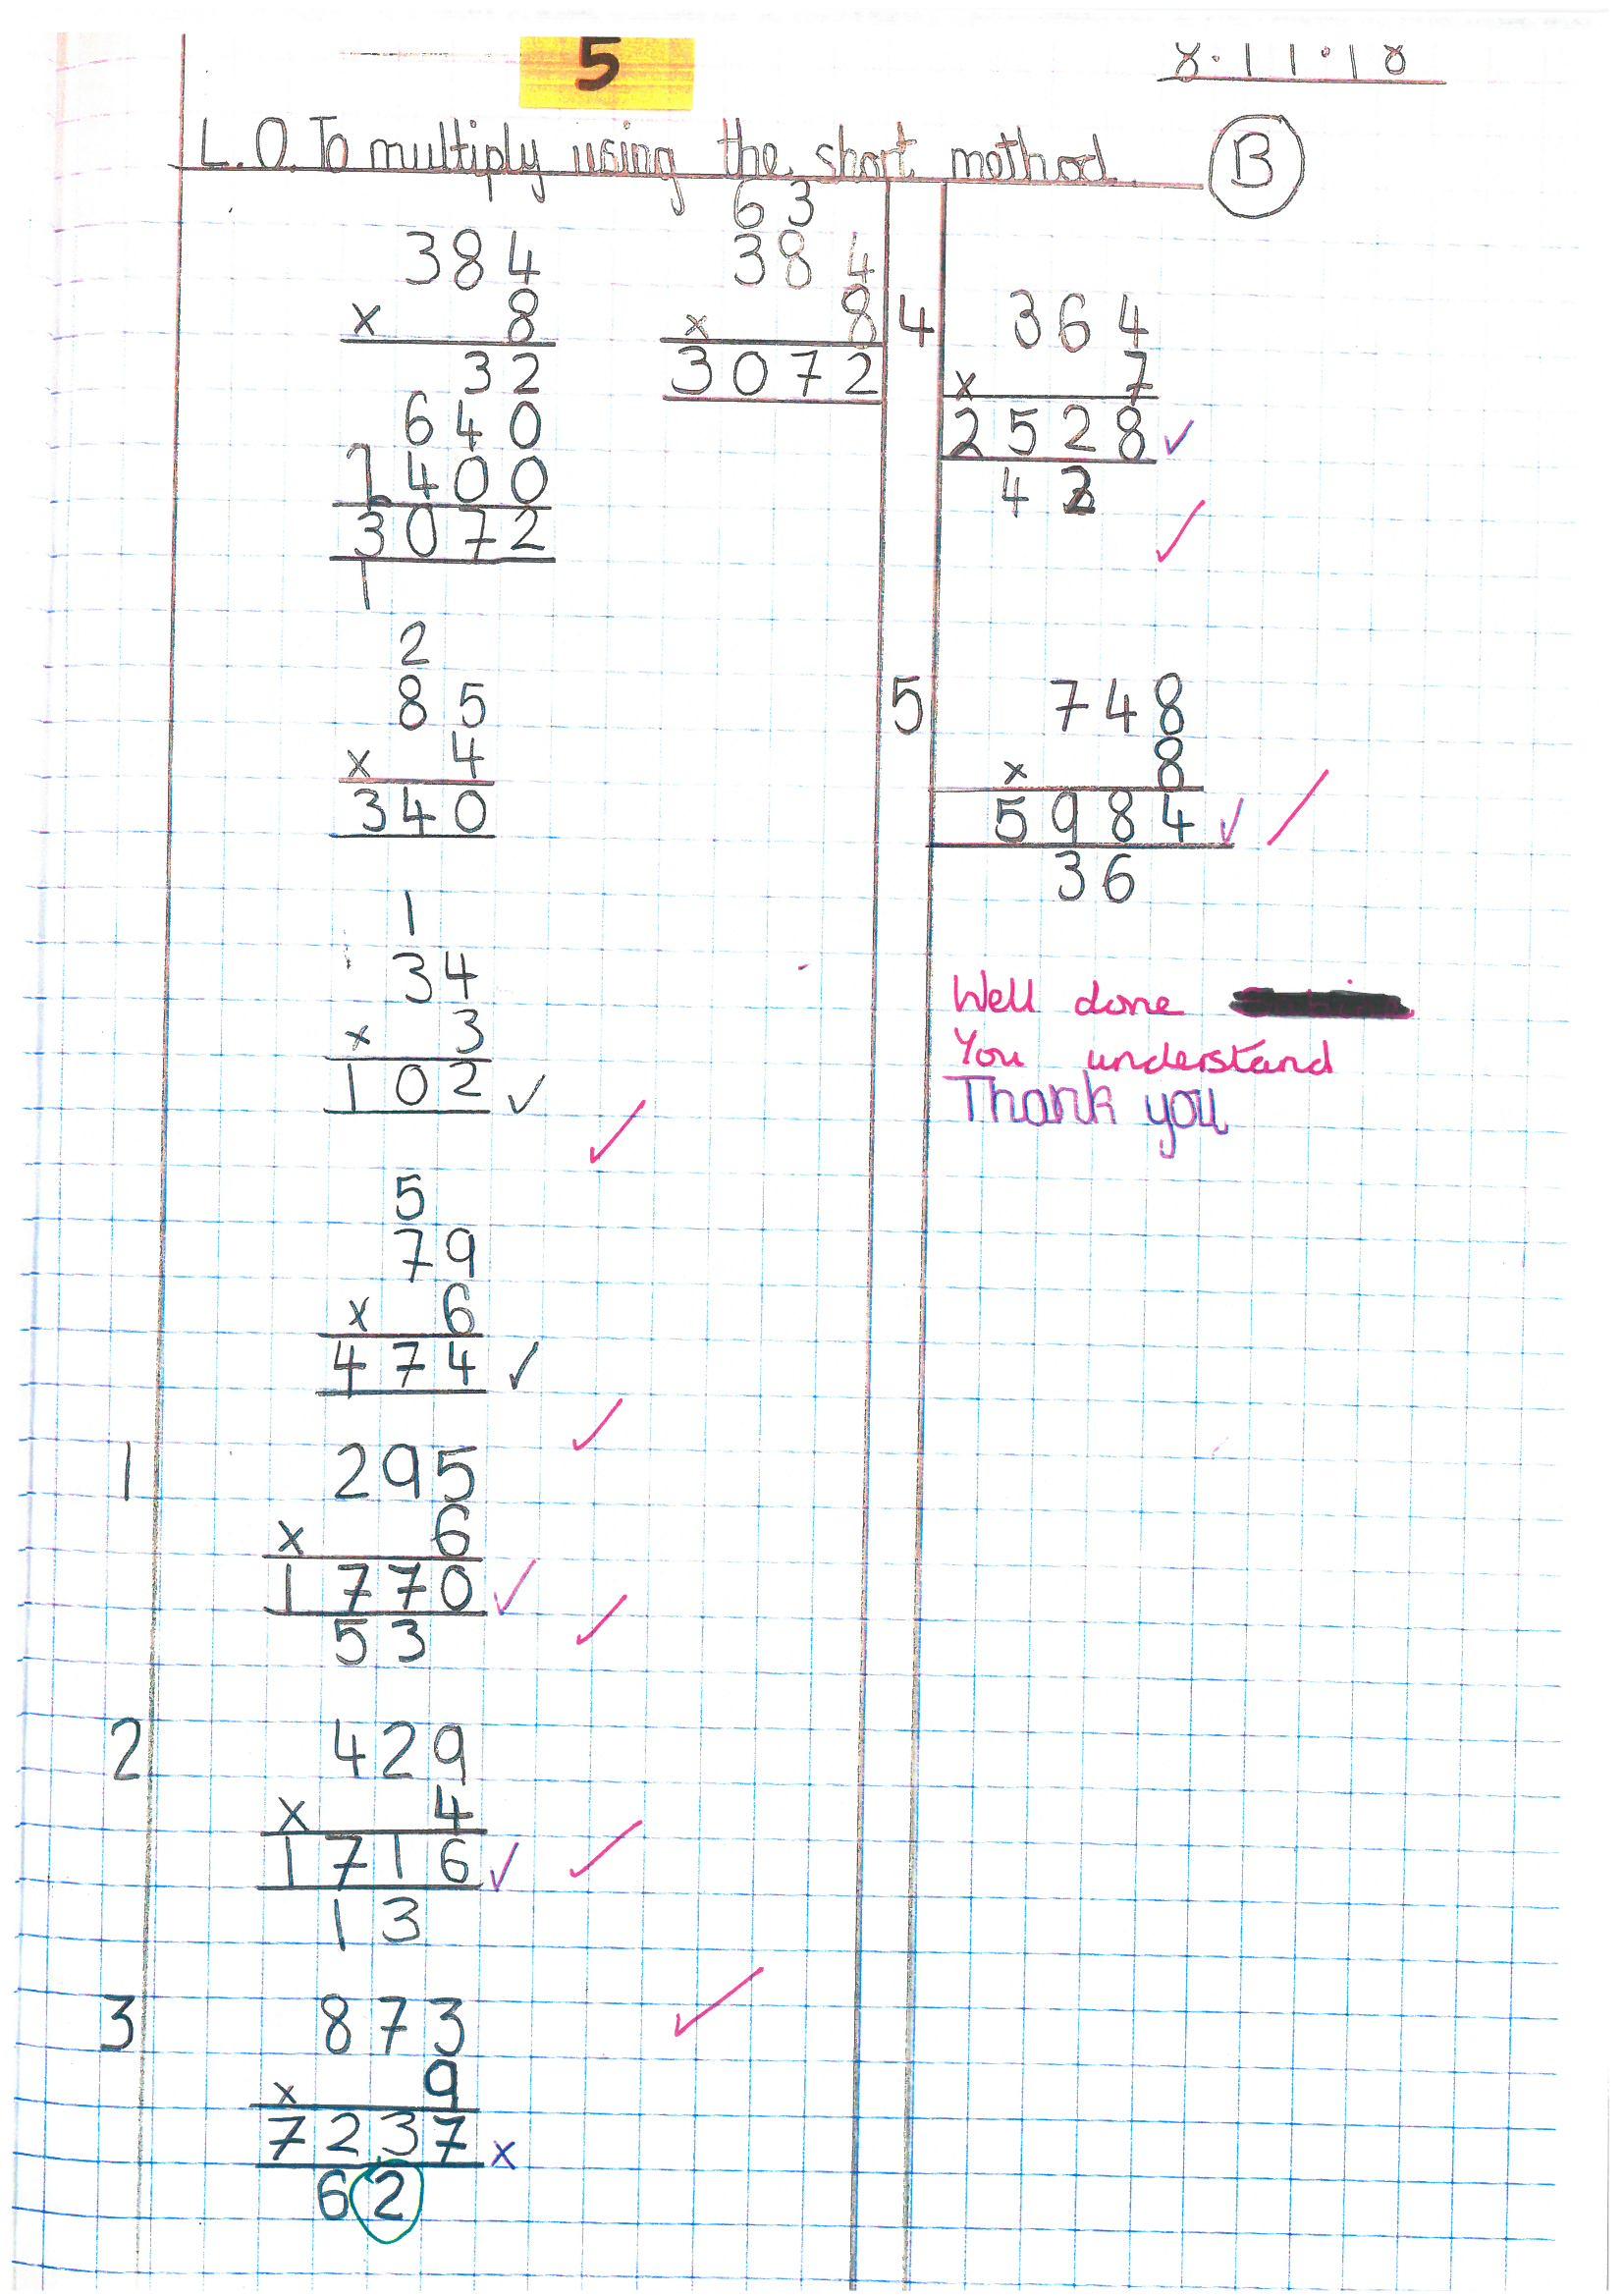 5
8.11.18
L.O. To multiply using the short method. B
384
x 8
32
640
2400
3072
1
63
384
x 8
3072
2
85
x 4
340
1
34
x 3
102 ✓
✓
5
79
x 6
474 ✓
✓
1 295
x 6
1770 ✓
53 ✓
2 429
x 4
1716 ✓ ✓
13
3 873 ✓
x 9
7237 x
62
4 364
x 7
2528 ✓
42
✓
5 748
x 8
5984 ✓ ✓
36
Well done
You understand
Thank you